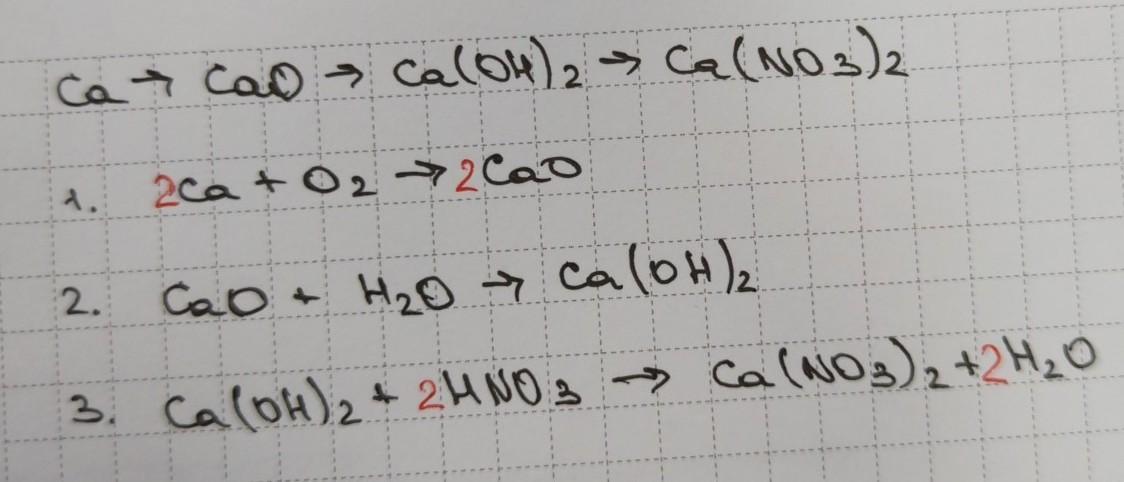 Ca → CaO → Ca(OH)2 → Ca(NO3)2
1. 2Ca + O2 → 2CaO
2. CaO + H2O → Ca(OH)2
3. Ca(OH)2 + 2HNO3 → Ca(NO3)2 + 2H2O